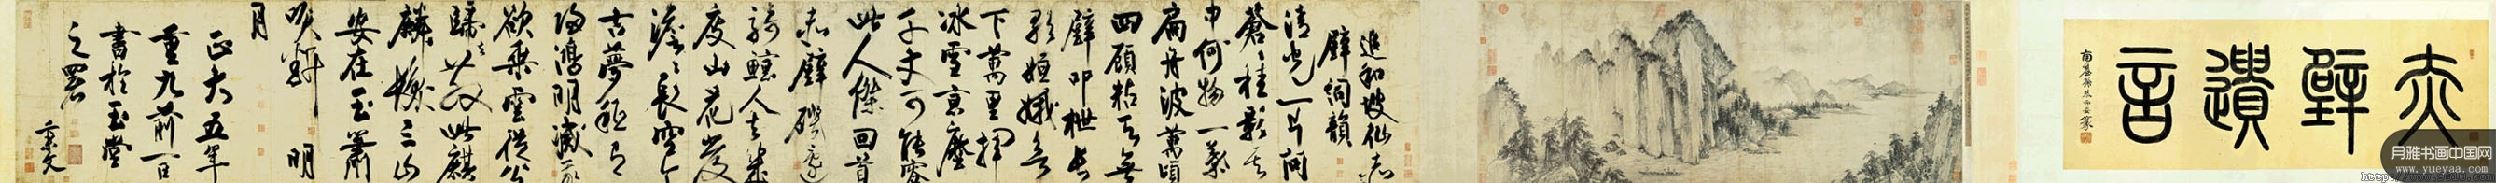 赤壁遺音
追和坡仙赤
壁詞韻
清光一片問
蒼々桂影其
中何物一葉
扁舟波萬頃
四顧粘天無
壁叩枻長
歌嫦娥欲
下萬里揮
冰雪京塵
千丈可能容
此人傑回首
赤壁磯邊
騎鯨人去幾
度山花發
澹々長空今
古夢秖有
歸鴻明滅我
欲乘雲從公
歸去散此麒
麟髮三山
安在玉簫
吹斷明
月
正大五年
重九前一日
書於玉堂
之署
秉文
月雅书画中国网
www.yueyaa.com